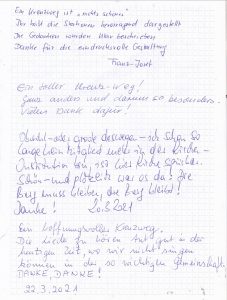 Ein Kreuzweg ist "nichts schönes"
Doch hat die Stationen hervorragend dargestellt
Die Gedanken wurden klar beschrieben
Danke für die eindrucksvolle Gestaltung
Franz-Josef
Ein toller Kreuz-Weg!
Ganz anders und darum so besonders.
Vielen Dank dafür!
Obwohl - oder gerade deswegen - ich schon so
lange kein Mitglied mehr in der Kirche -
Institution bin,
Schön - und plötzlich war es da! Die
Berg muss bleiben, der Berg bleibt!
Danke! 20.3.2021
Ein hoffnungsvoller Kreuzweg.
Die Lieder zu hören tut gut in der
heutigen Zeit, wo wir nicht singen
können in der so wichtigen Gemeinschaft.
DANKE, DANKE!
22.3.2021